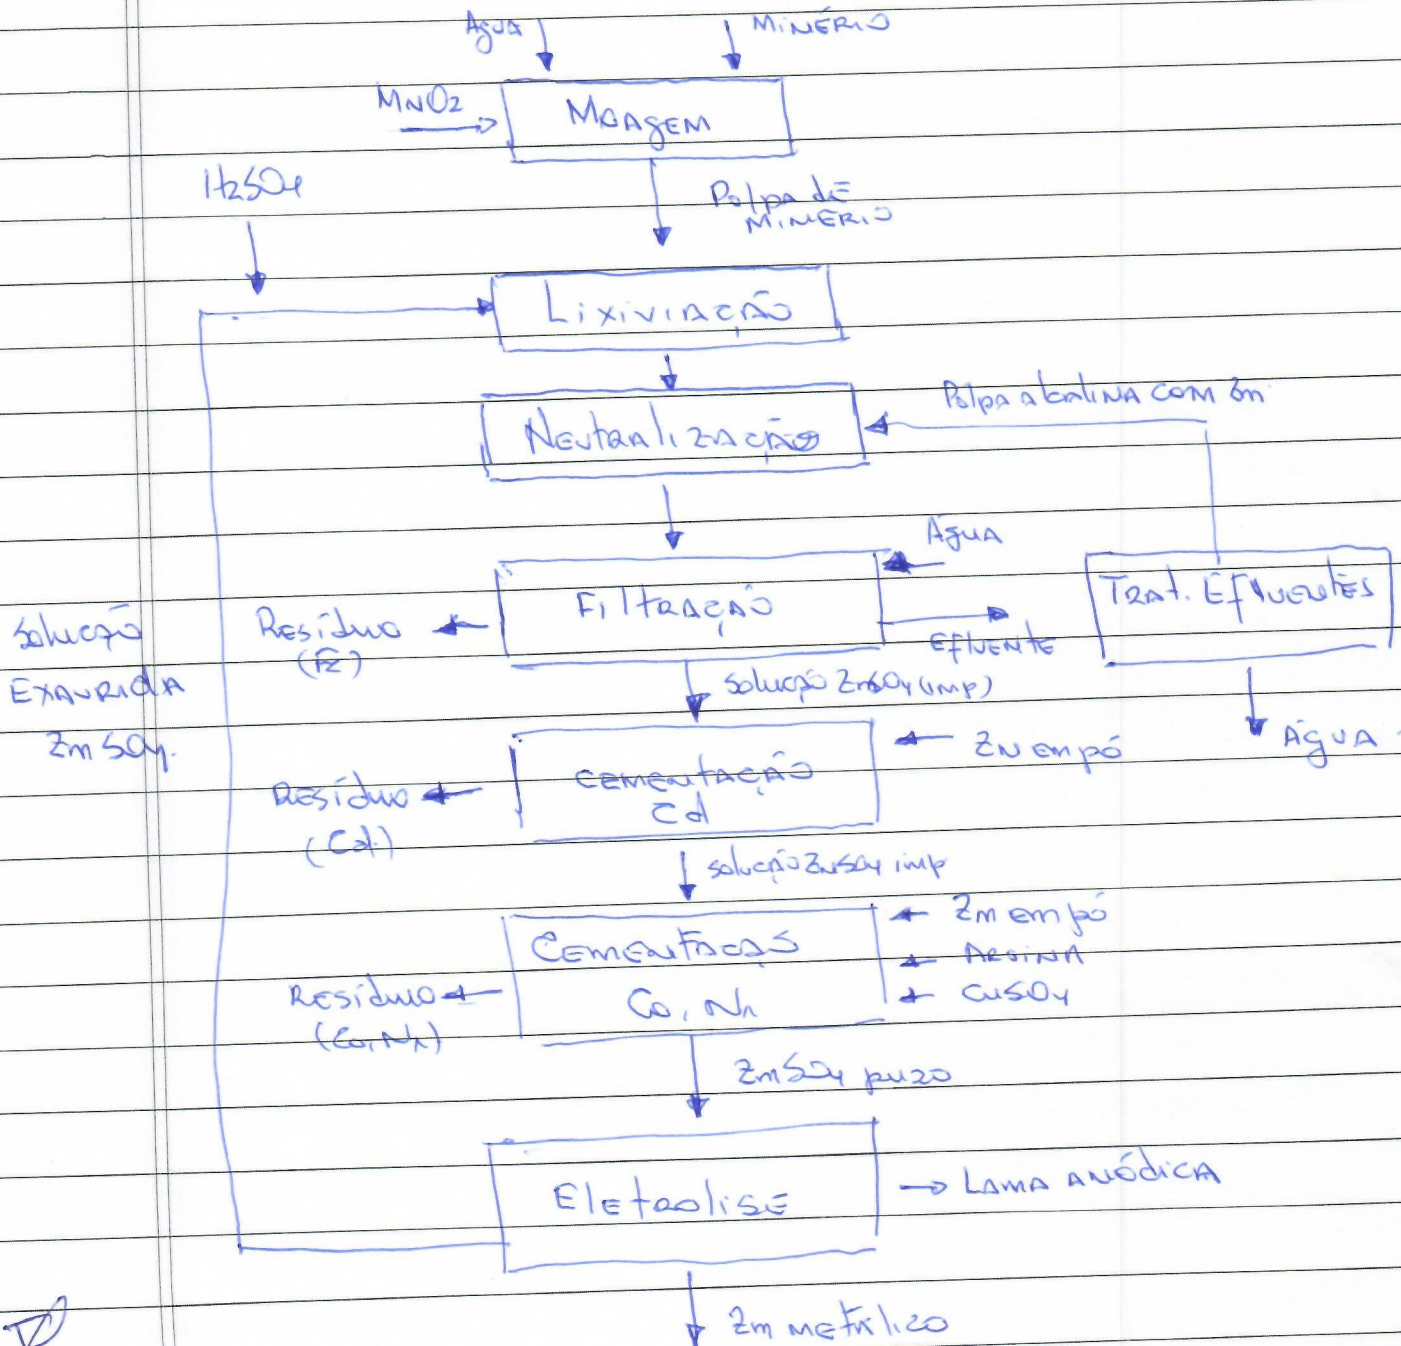 Água
MINÉRIO
MNO2
MOAGEM
H2SO4
Polpa de
MINÉRIO
LIXIVIAÇÃO
Polpa alcalina com Zn
NEUTRALIZAÇÃO
Água
FILTRAÇÃO
TRAT. EFLUENTES
Solução
EXAURIDA
ZnSO4.
RESÍDUO
(FE)
EFLUENTE
solução ZnSO4 (imp)
ÁGUA
ZN em pó
CEMENTAÇÃO
Cd
RESÍDUO
(Cd)
solução ZnSO4 imp
CEMENTAÇÃO
Co, Ni
Zn em pó
ARSINA
CuSO4
RESÍDUO
(Co, Ni)
ZnSO4 puro
ELETROLISE
LAMA ANÓDICA
Zn METÁLICO